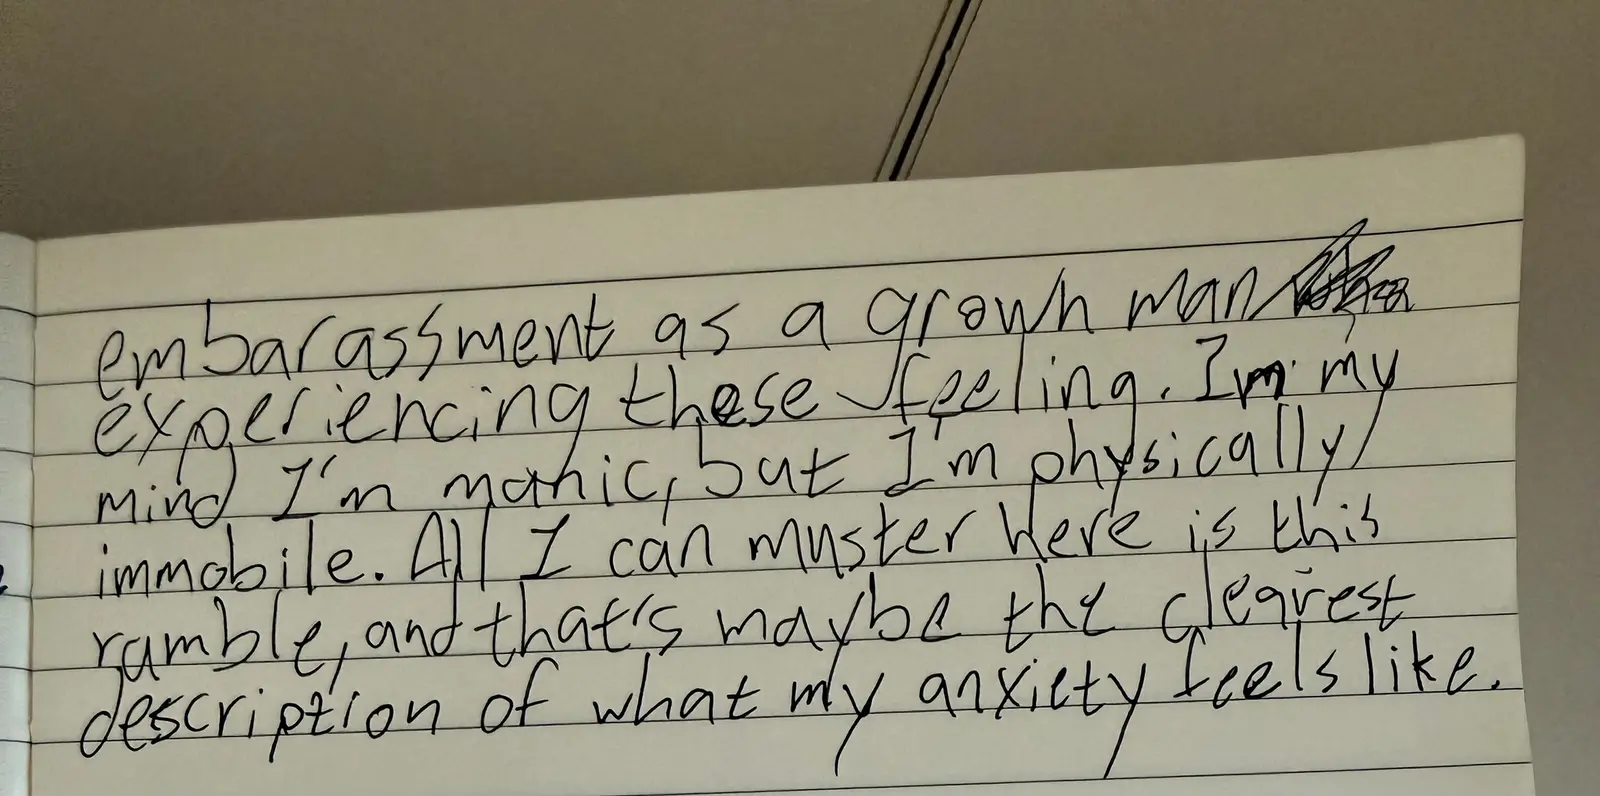 embarassment as a grown man
experiencing these feeling. Im my
mind I'm manic, but I'm physically
immobile. All I can muster here is this
ramble, and that's maybe the clearest
description of what my anxiety feels like.